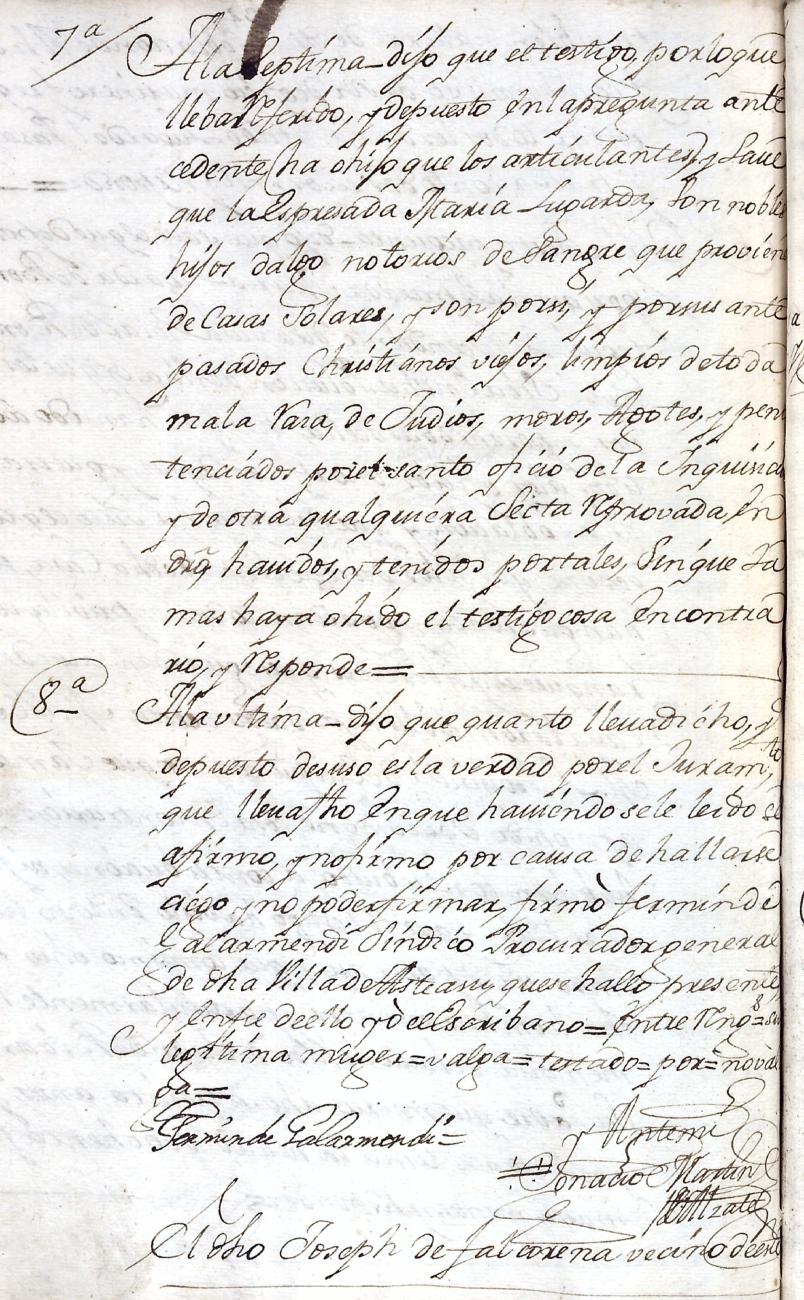 7ª/ A la septima dijo que el testigo, por lo que
lleba rreferido, y depuesto en la pregunta ante
cedente ha ohijo que los articulantes, y save
que la Espresada Maria Lugarda, son nobles
hijos dalgo notorios de sangre que provien
de Casas Solares, y son por si, y por sus ante
pasados Christianos viejos, limpios de toda
mala raza, de Judios, moros, Agotes, y peni
tenciados por el santo oficio de la Inquisicio
y de otra qualquiera secta rreprovada, en
dra havidos, y tenidos por tales, sin que Ja
mas haya ohido el testigo cosa en contra
rio, y rresponde=
8ª A la ultima dijo que quanto lleva dicho, y
depuesto de suso es la verdad por el Juramto,
que lleva fho en que haviendosele leido se
afirmó, y no firmo por causa de hallarse
ciego y no poder firmar, firmò fermin de
Galarmendi Sindico Procurador general
de dha Villa de Asteasu, que se hallo presente,
y En fee de ello yò el Escribano= Entre rreng.s= su
legitima muger= valga= testado= por= no val
ga=
Fermin de Galarmendi=
Antemi
Ignacio Martin
de Alzate
El dho Joseph de Jalcorena vecino de esta